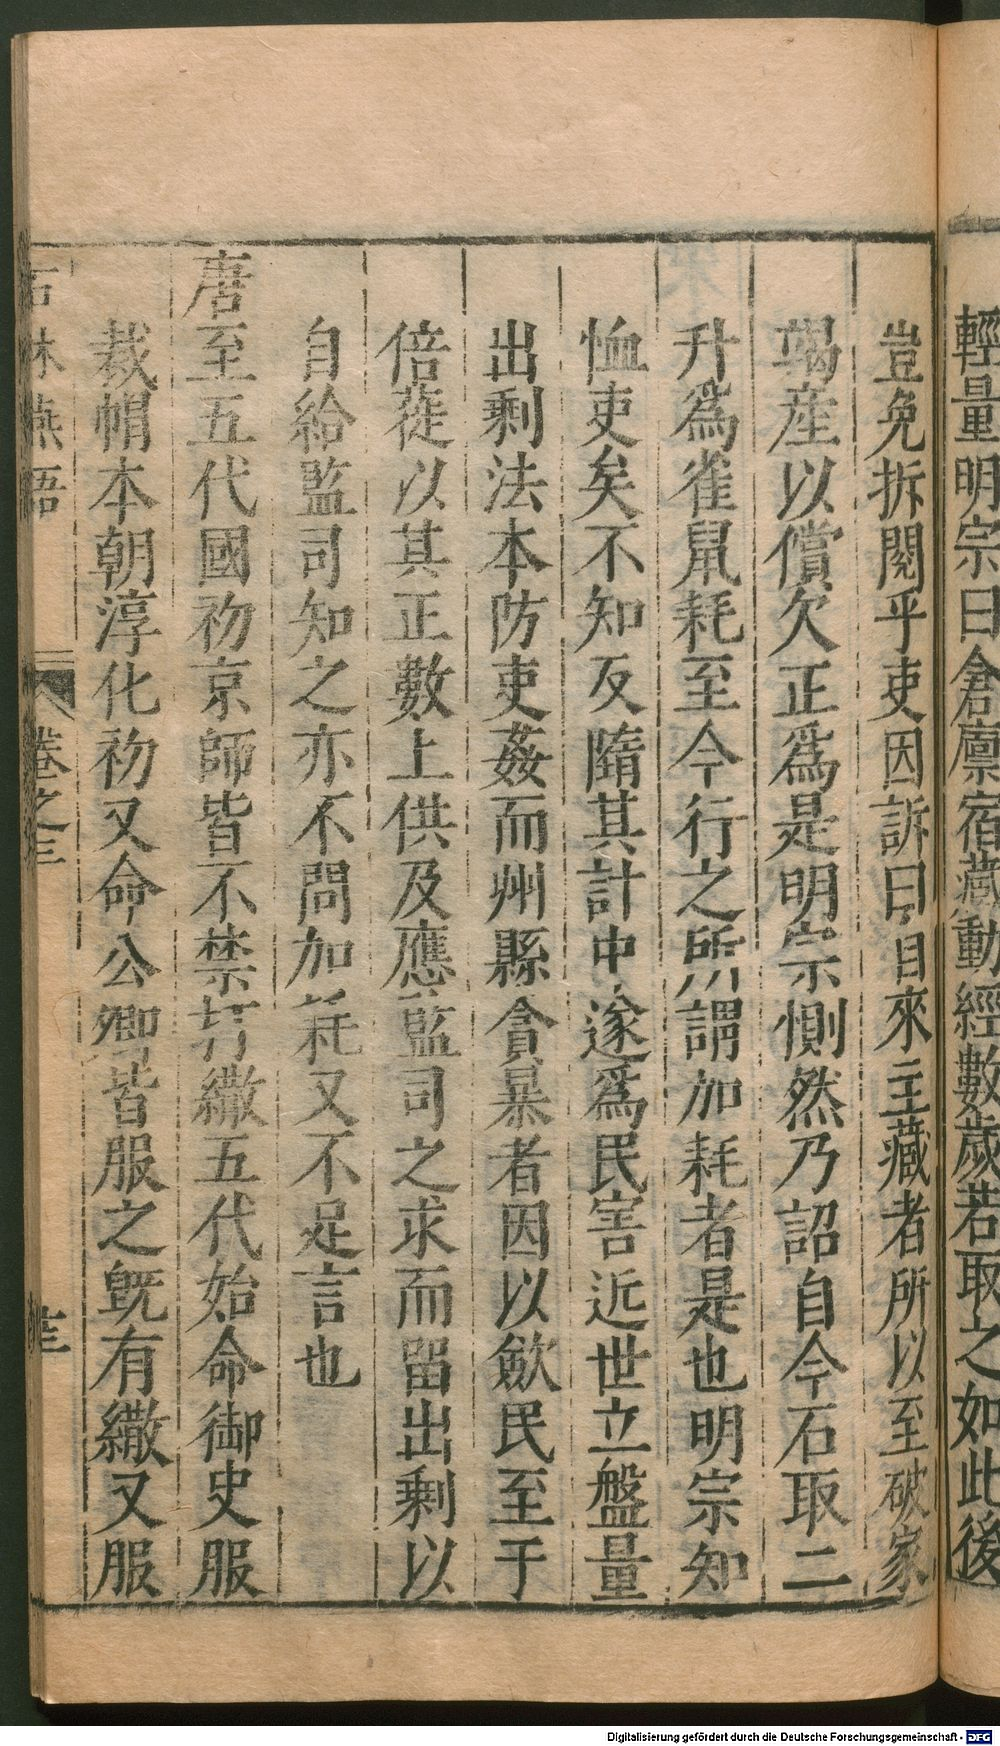 輕量明宗曰倉廪宿藏動經數歲若取之如此後
豈免折閱乎吏因訴曰自來主藏者所以至破家
竭産以償欠正爲是明宗惻然乃詔自今石取二
升爲雀鼠耗至今行之所謂加耗者是也明宗知
恤吏矣不知反隋其計中遂爲民害近世立盤量
出剩法本防吏姦而州縣貪暴者因以歛民至于
倍蓰以其正數上供及應監司之求而留出剩以
自給監司知之亦不問加耗又不足言也
唐至五代國初京師皆不禁打繖五代始命御史服
裁帽本朝淳化初又命公卿皆服之旣有繖又服
石林燕語
卷之三
Digitalisierung gefördert durch die Deutsche Forschungsgemeinschaft - DFG